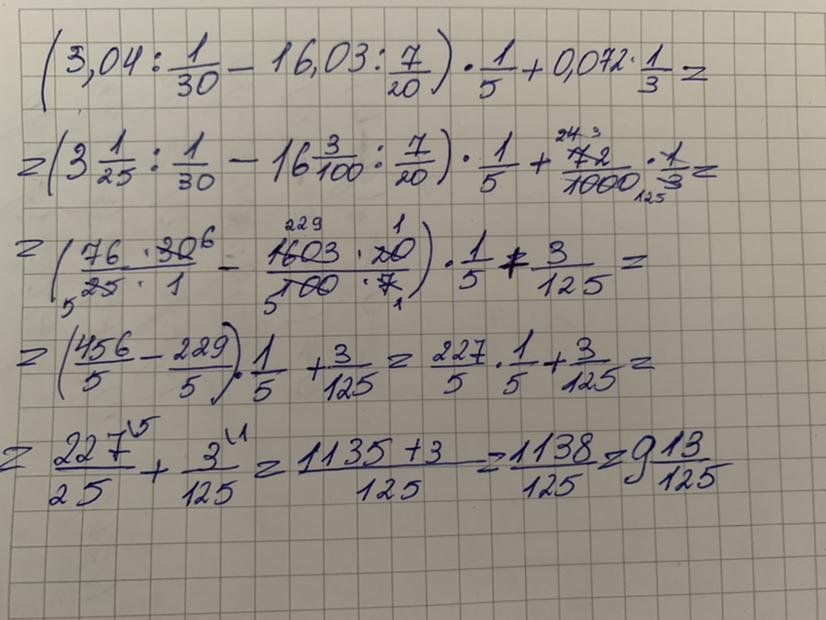 (3,04 : 1/30 − 16,03 : 7/20) · 1/5 + 0,072 · 1/3 =
= (3 1/25 : 1/30 − 16 3/100 : 7/20) · 1/5 + 24 3 72/1000 125 · 1/3 =
= (76 · 30 6 / 5 25 · 1 − 229 1603 · 20 1 / 5 100 · 7 1) · 1/5 + 3/125 =
= (456/5 − 229/5) · 1/5 + 3/125 = 227/5 · 1/5 + 3/125 =
= 227\5 / 25 + 3\1 / 125 = 1135 + 3 / 125 = 1138/125 = 9 13/125